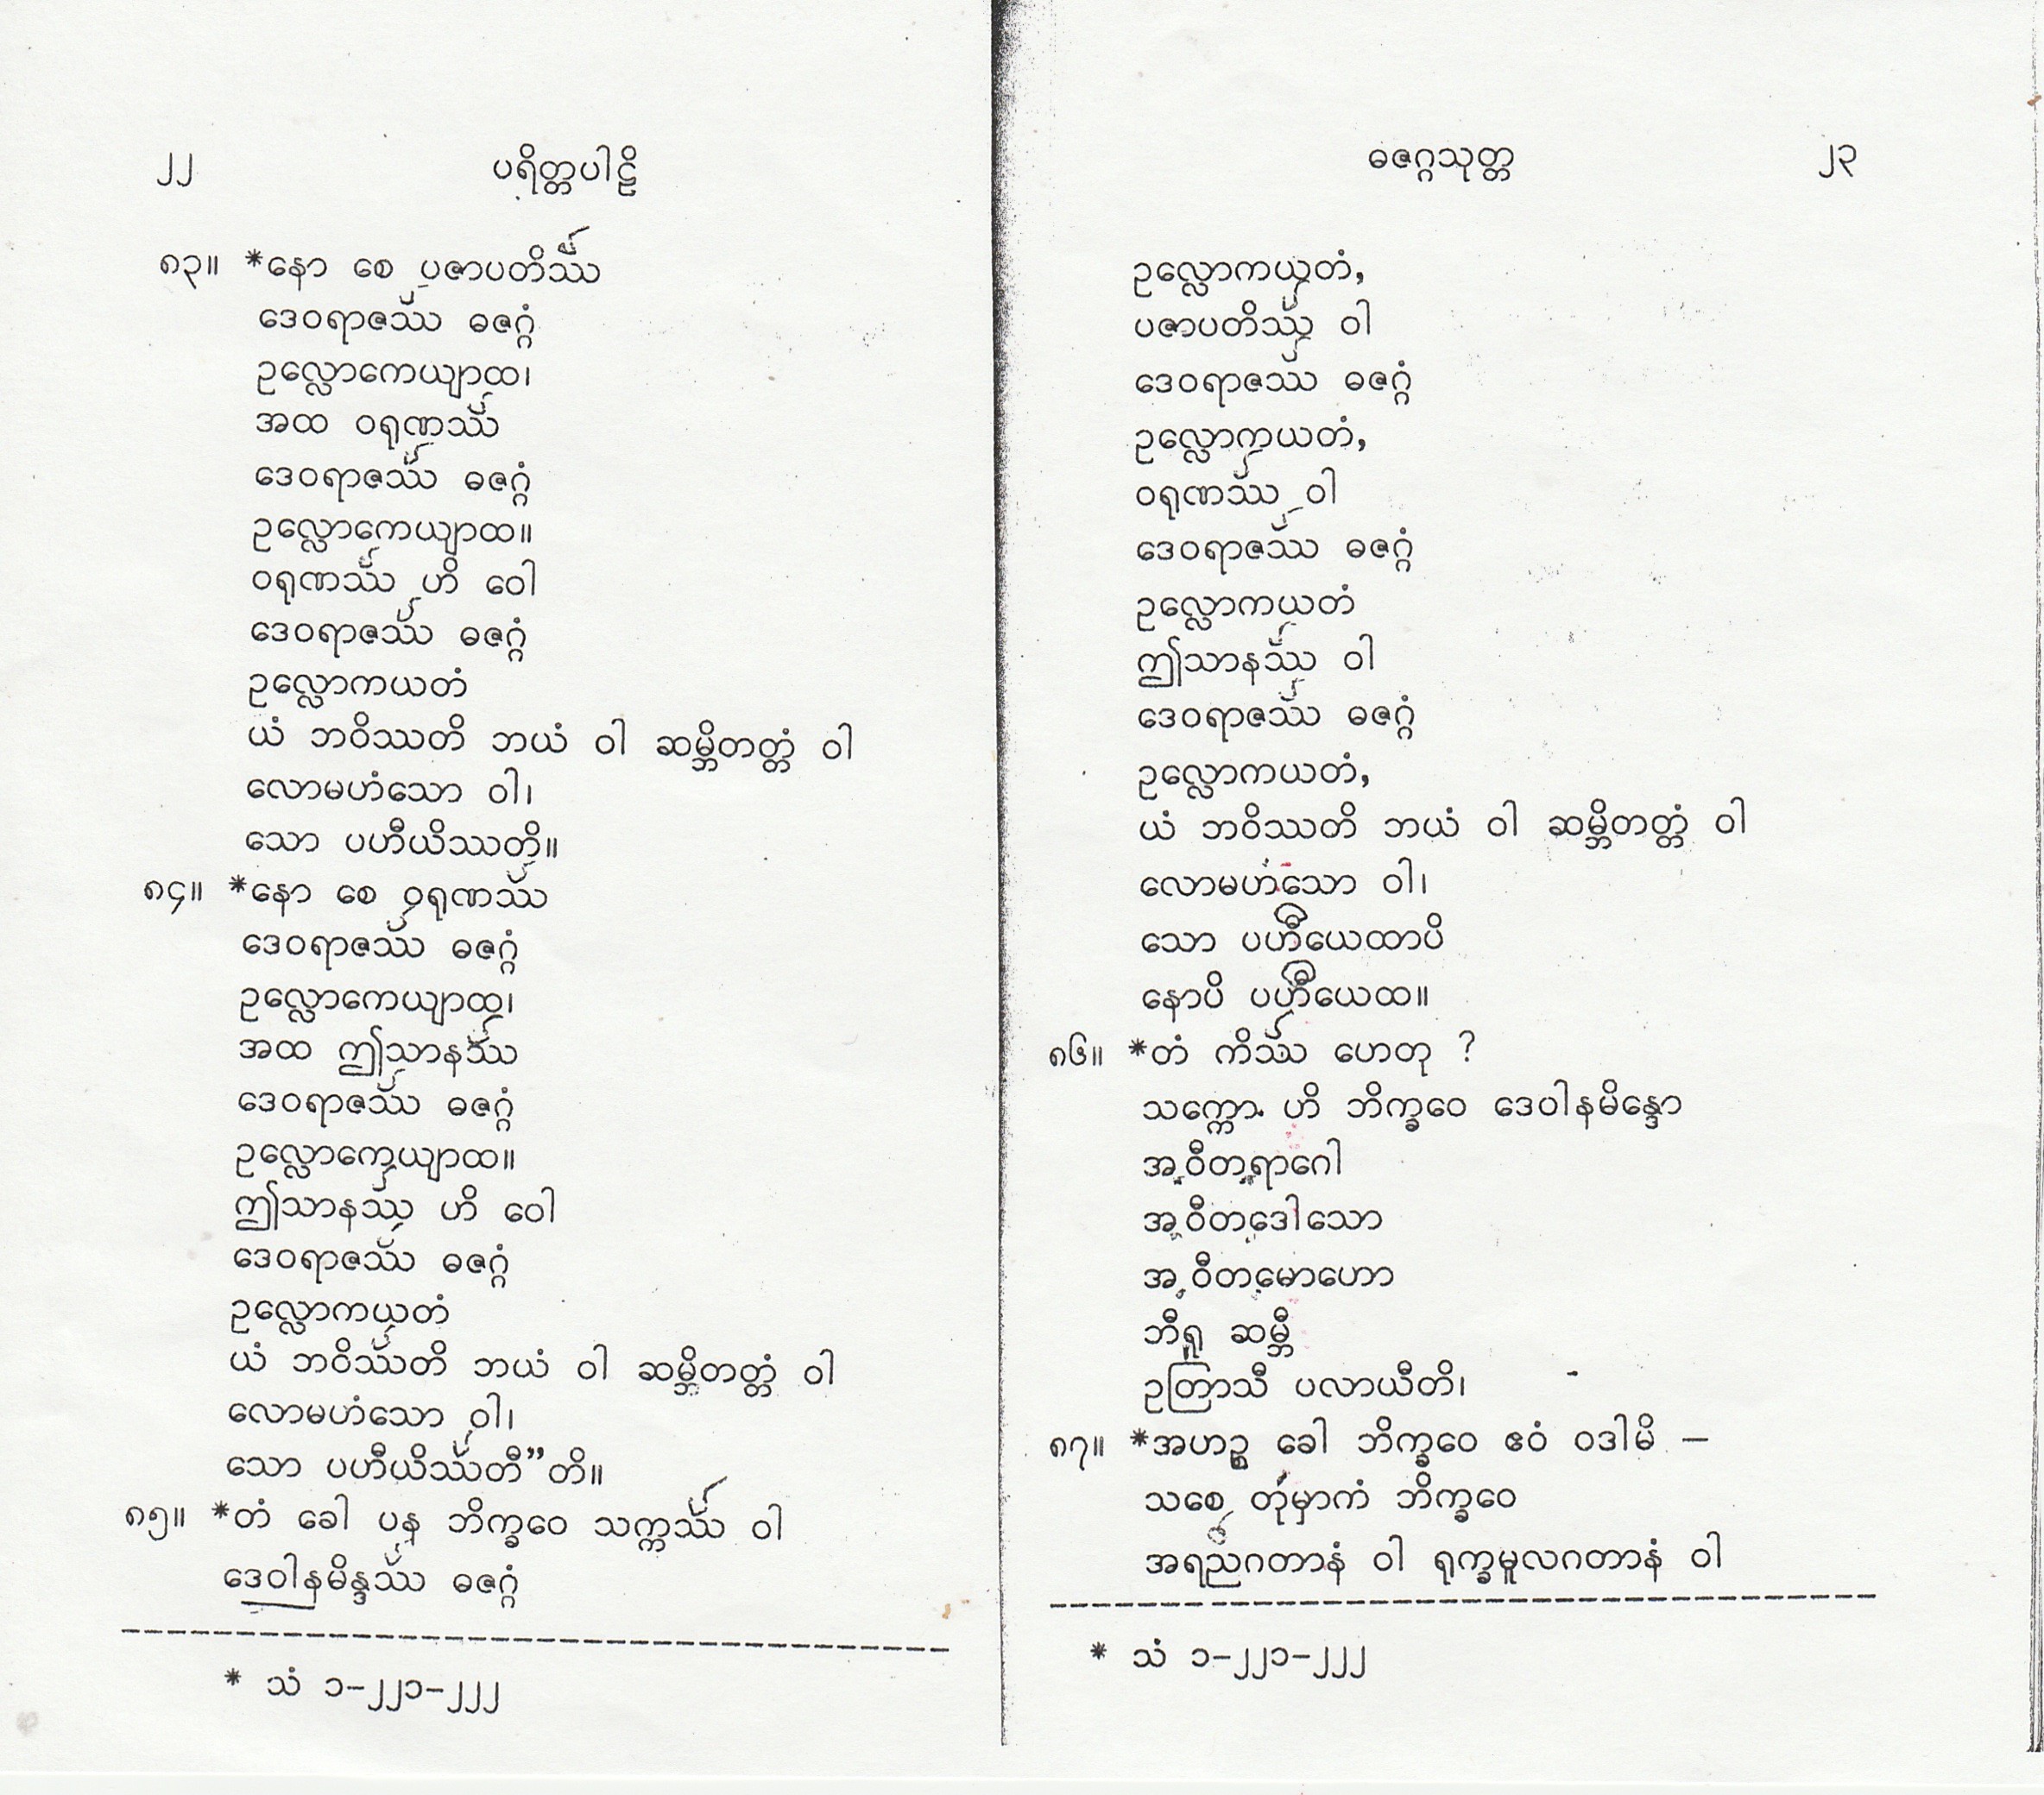 ၂၂
ပရိတ္တပါဠိ
၈၃။ *နော စေ ပဇာပတိဿ
ဒေဝရာဇဿ ဓဇဂ္ဂံ
ဥလ္လောကေယျာထ၊
အထ ဝရုဏဿ
ဒေဝရာဇဿ ဓဇဂ္ဂံ
ဥလ္လောကေယျာထ။
ဝရုဏဿ ဟိ ဝေါ
ဒေဝရာဇဿ ဓဇဂ္ဂံ
ဥလ္လောကယတံ
ယံ ဘဝိဿတိ ဘယံ ဝါ ဆမ္ဘိတတ္တံ ဝါ
လောမဟံသော ဝါ၊
သော ပဟီယိဿတိ။
၈၄။ *နော စေ ဝရုဏဿ
ဒေဝရာဇဿ ဓဇဂ္ဂံ
ဥလ္လောကေယျာထ၊
အထ ဤသာနဿ
ဒေဝရာဇဿ ဓဇဂ္ဂံ
ဥလ္လောကေယျာထ။
ဤသာနဿ ဟိ ဝေါ
ဒေဝရာဇဿ ဓဇဂ္ဂံ
ဥလ္လောကယတံ
ယံ ဘဝိဿတိ ဘယံ ဝါ ဆမ္ဘိတတ္တံ ဝါ
လောမဟံသော ဝါ၊
သော ပဟီယိဿတီ”တိ။
၈၅။ *တံ ခေါ ပန ဘိက္ခဝေ သက္ကဿ ဝါ
ဒေဝါနမိန္ဒဿ ဓဇဂ္ဂံ
* သံ ၁-၂၂၁-၂၂၂
ဓဇဂ္ဂသုတ္တ
၂၃
ဥလ္လောကယတံ,
ပဇာပတိဿ ဝါ
ဒေဝရာဇဿ ဓဇဂ္ဂံ
ဥလ္လောကယတံ,
ဝရုဏဿ ဝါ
ဒေဝရာဇဿ ဓဇဂ္ဂံ
ဥလ္လောကယတံ
ဤသာနဿ ဝါ
ဒေဝရာဇဿ ဓဇဂ္ဂံ
ဥလ္လောကယတံ,
ယံ ဘဝိဿတိ ဘယံ ဝါ ဆမ္ဘိတတ္တံ ဝါ
လောမဟံသော ဝါ၊
သော ပဟီယေထာပိ
နောပိ ပဟီယေထ။
၈၆။ *တံ ကိဿ ဟေတု ?
သက္ကော ဟိ ဘိက္ခဝေ ဒေဝါနမိန္ဒော
အဝီတရာဂေါ
အဝီတဒေါသော
အဝီတမောဟော
ဘီရူ ဆမ္ဘီ
ဥတြာသီ ပလာယီတိ၊
၈၇။ *အဟဉ္စ ခေါ ဘိက္ခဝေ ဧဝံ ဝဒါမိ –
သစေ တုမှာကံ ဘိက္ခဝေ
အရညဂတာနံ ဝါ ရုက္ခမူလဂတာနံ ဝါ
* သံ ၁-၂၂၁-၂၂၂